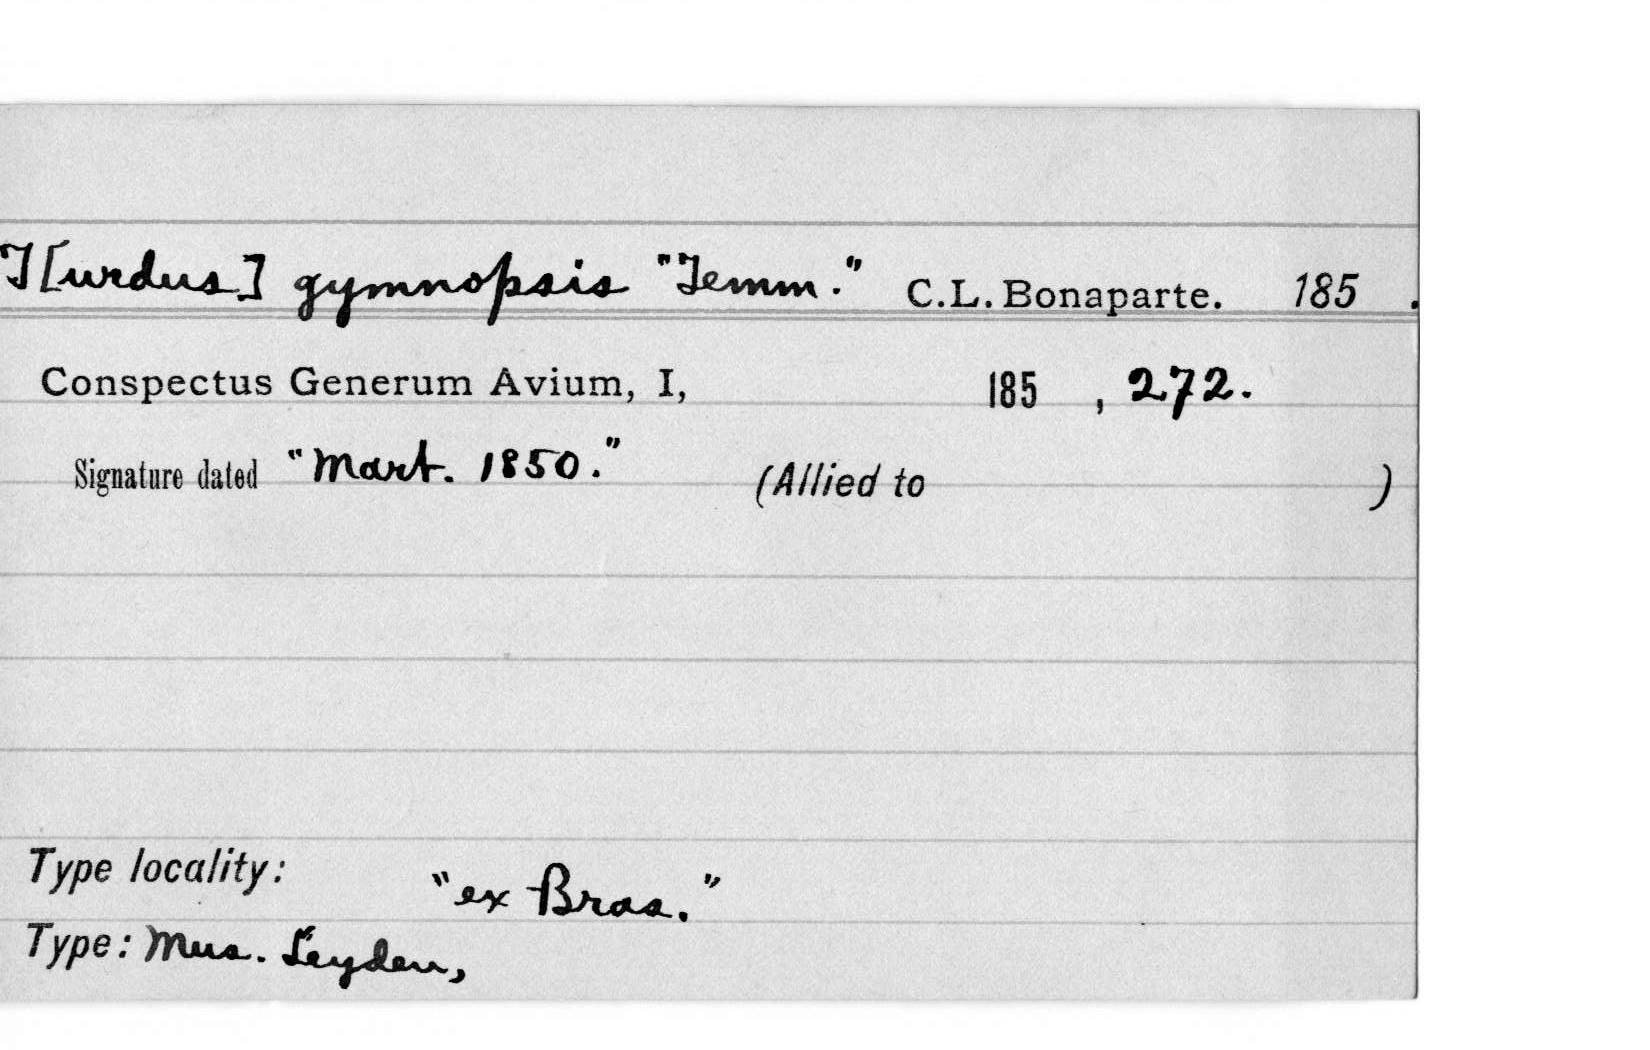 T[urdus] gymnopsis "Temm." C.L. Bonaparte. 185 .
Conspectus Generum Avium, I, 185 , 272.
Signature dated "Mart. 1850." (Allied to )
Type locality: "ex Bras."
Type: Mus. Leyden,